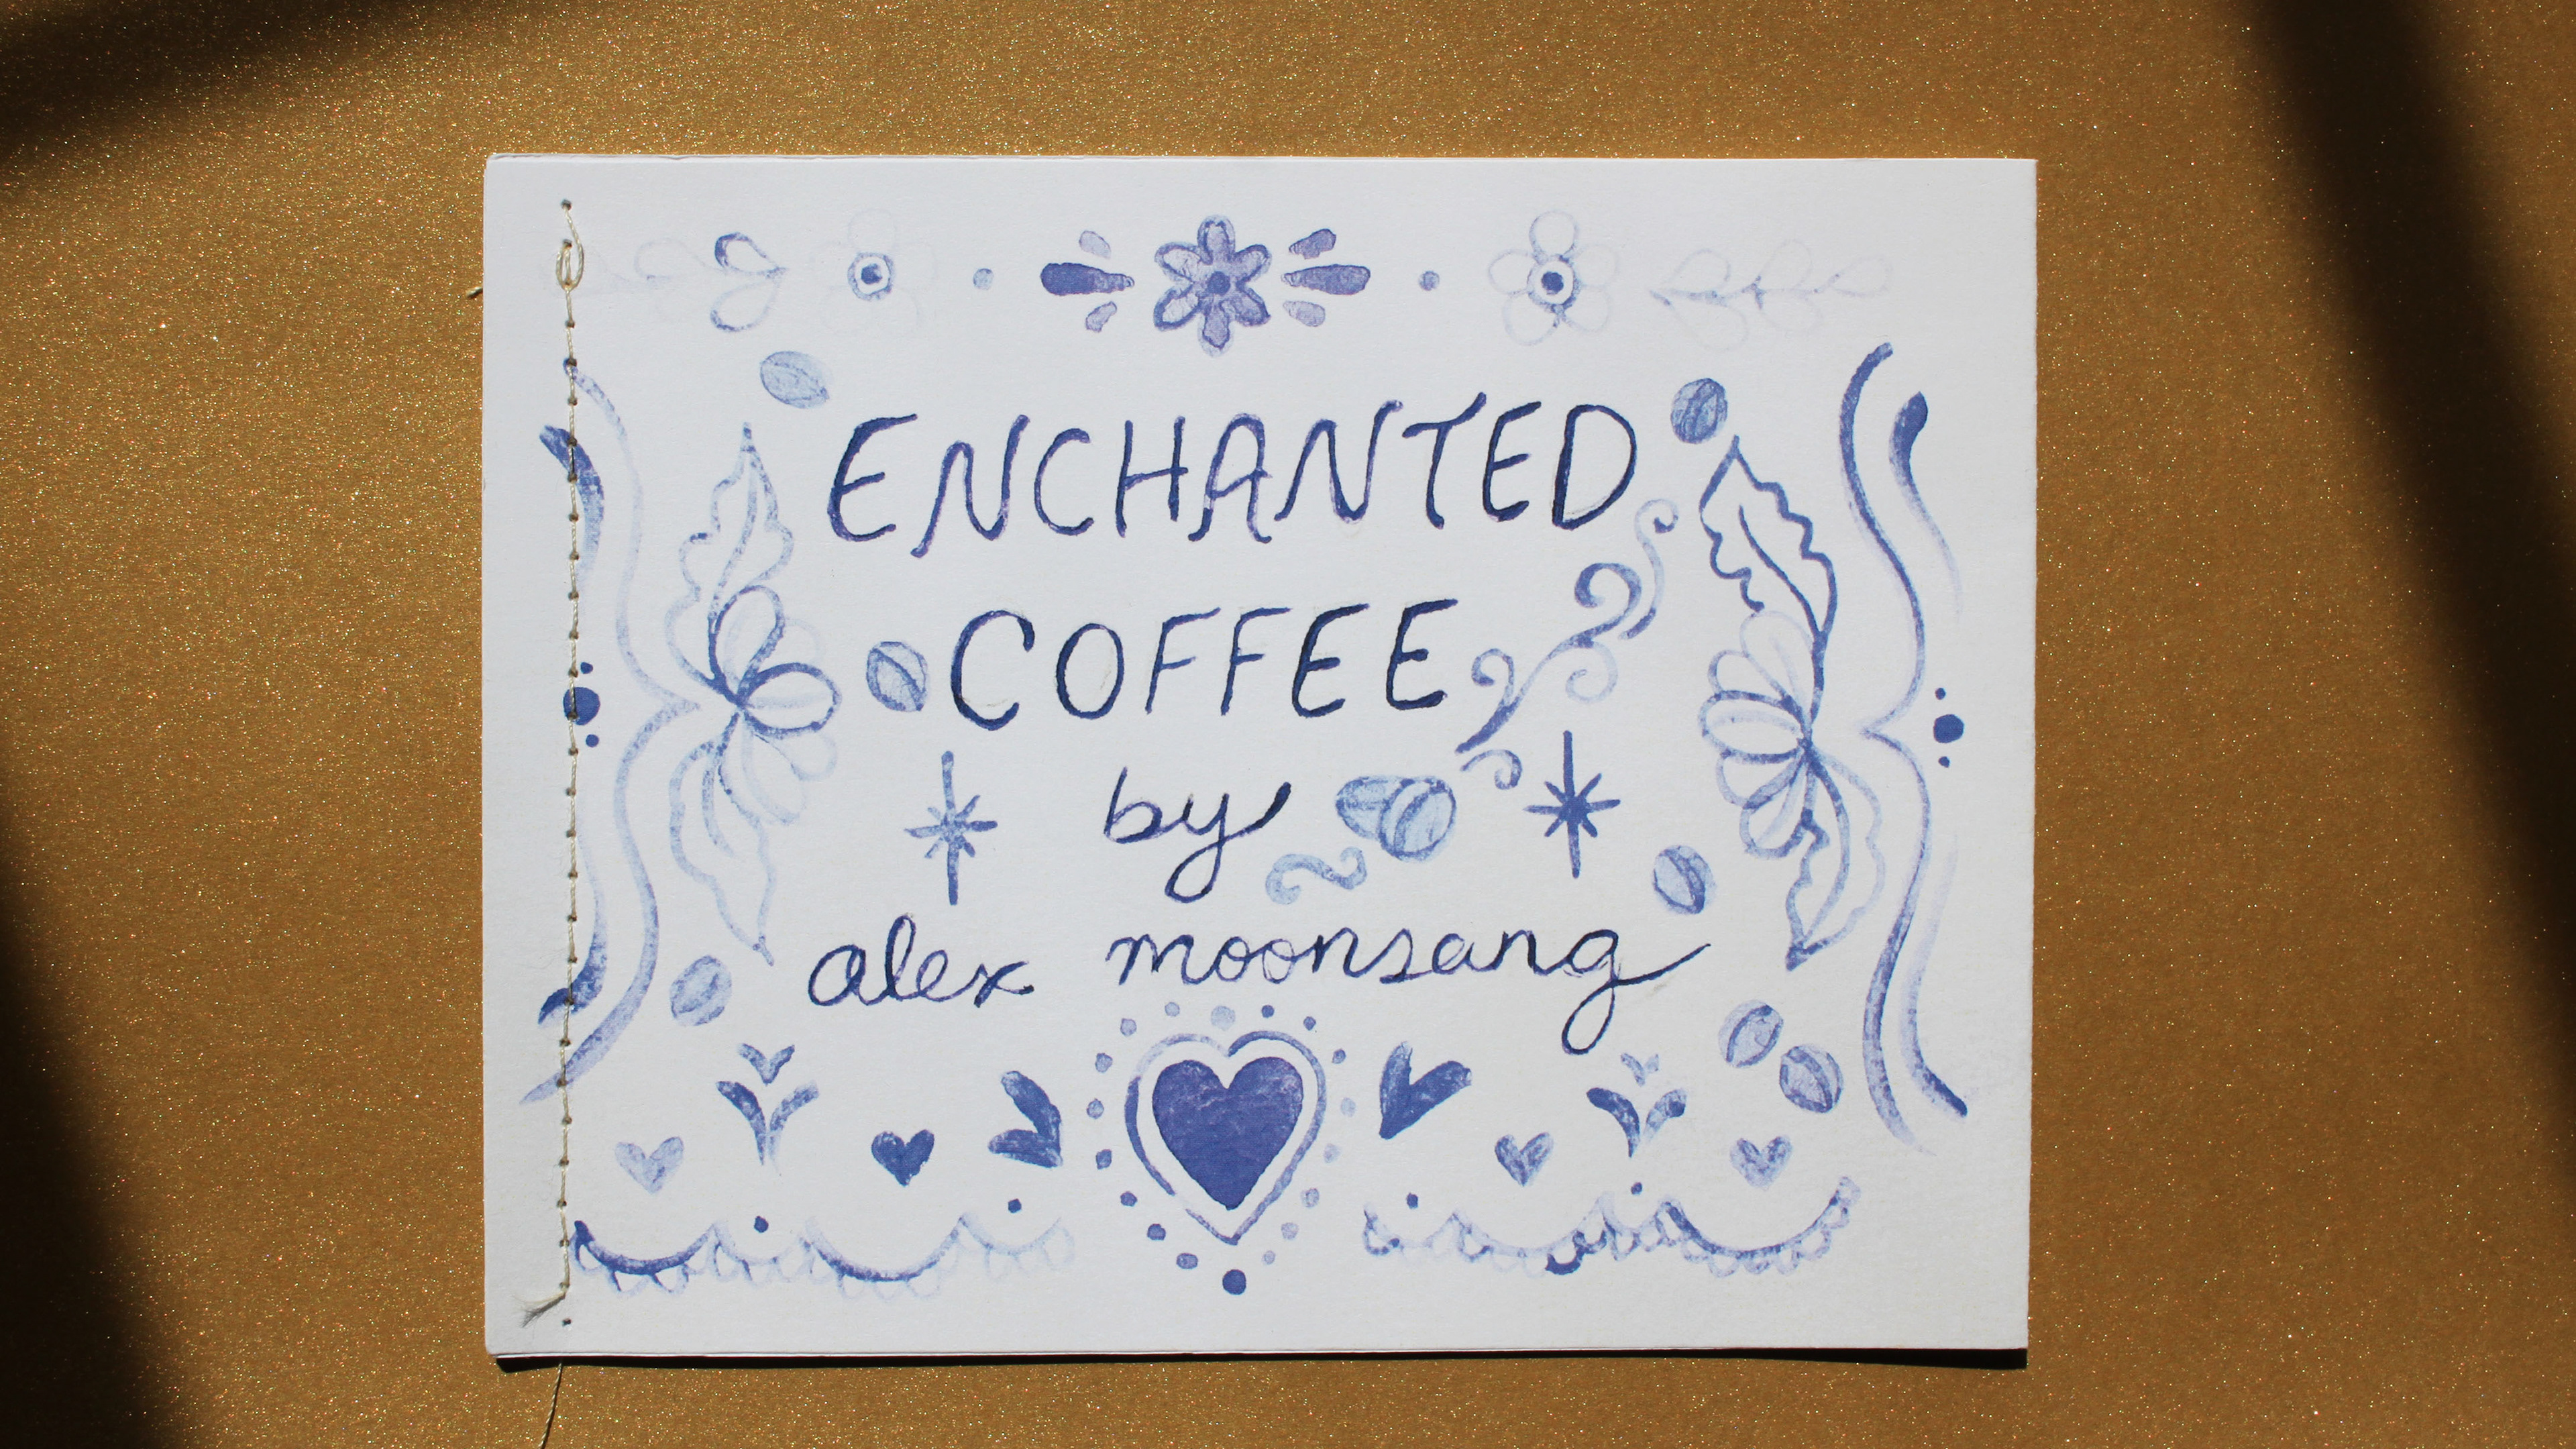 ENCHANTED
COFFEE
by
alex moonsang